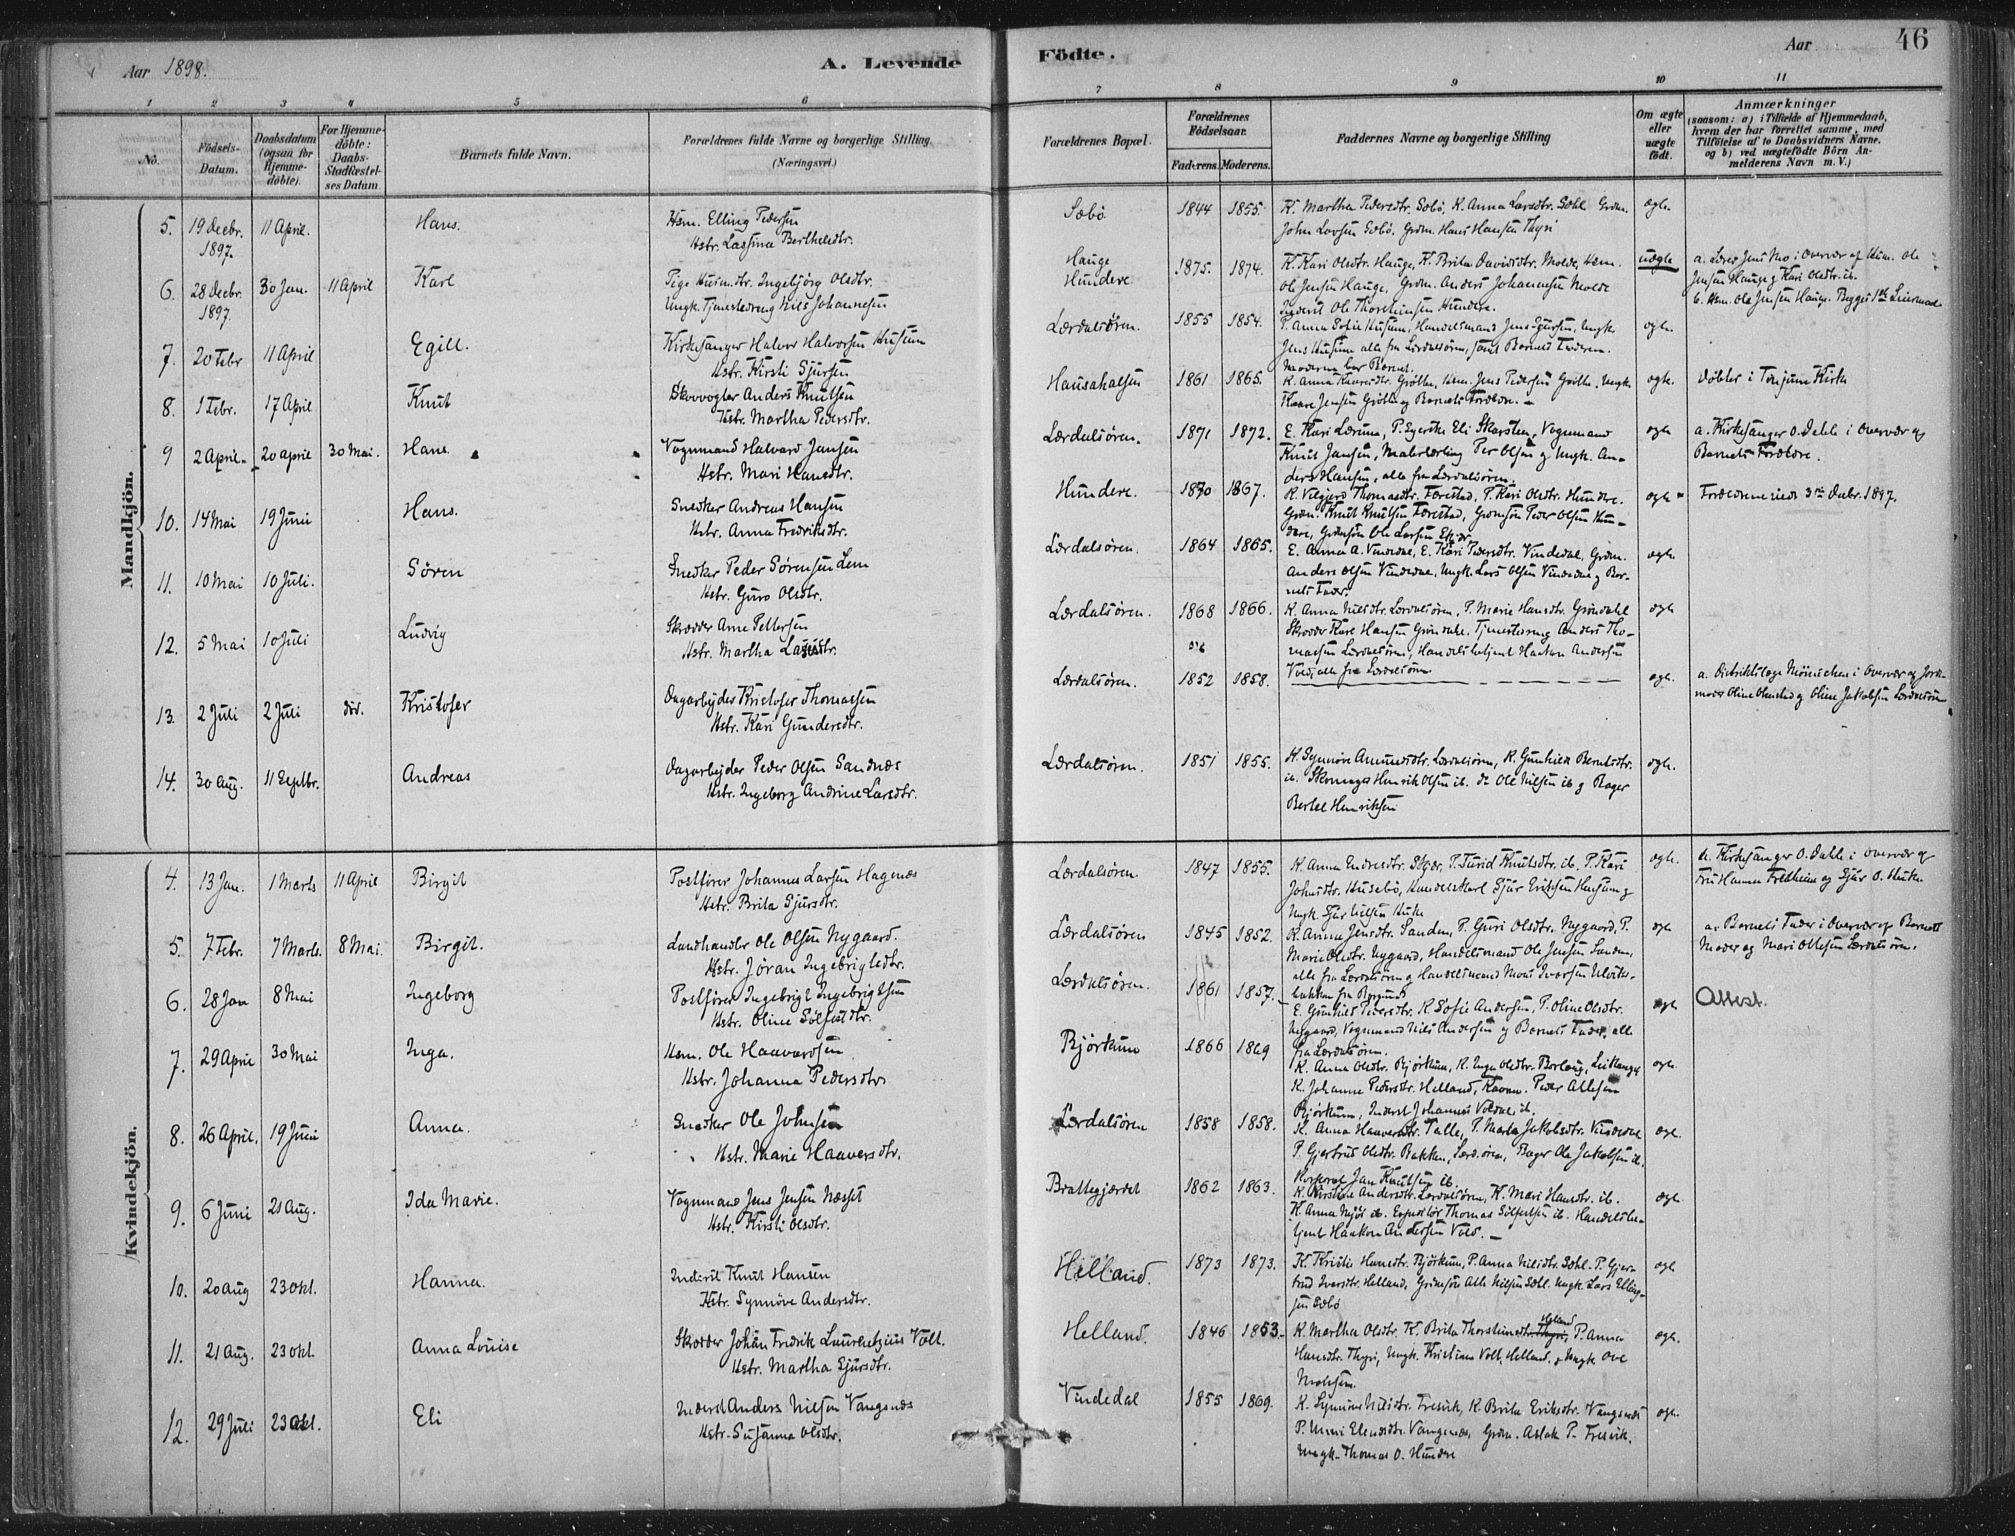 Aar 1898.
A. Levende
Födte.
Aar
46
1 2 3 4 5 6
7 8 9 10 11
No.
Födsels-
Datum.
Daabsdatum
(ogsaa for
Hjemme-
döbte).
For Hjemme-
döbte:
Daabs-
Stadfæstel-
ses Datum
Barnets fulde Navn.
Forældrenes fulde Navne og borgerlige Stilling
(Næringsvei.)
Forældrenes Bopæl.
Forældrenes
Födselsaar.
Faderens. Moderens.
Faddernes Navne og borgerlige Stilling
Om ægte
eller
uægte
födt.
Anmærkninger
(saasom: a) i Tilfælde af Hjemmedaab,
hvem der har forrettet samme, med
Tilföielse af to Daabsvidners Navne,
og b) ved uægtefödte Börn An-
melderens Navn m. V.)
Mandkjön.
5. 19 Decbr. 1897. 11 April. Hans. Hsm. Elling Pedersen
Hstr. Lassina Bertheledtr.
Sæbö 1844 1855. K. Martha Pedersdtr. Sæbö, K. Anna Larsdtr. Sæhl. Grdm.
John Larsen Sæbö. Grdm. Hans Hansen Thyri
ægte.
6. 28 Decbr. 1897. 30 Jan. 11 April Karl Pige Ingebjörg Olsdtr.
Ungk. Tjenestedreng Nils Johannesen
Hauge
Hundere. 1875. 1874. K. Kari Olsdtr. Hauge, K. Brita Davidsdtr. Molde, Hsm.
Ole Jensen Hauge, Grdm. Anders Johannesen Molde
Inderst Ole Thorsteinsen Hundere.
uægte
a. Lærer Jens Mo i Overvær af Hsm. Ole
Jensen Hauge & Kari Olsdtr. ib.
b. Hsm. Ole Jensen Hauge. Begges 1ste Leiermaal
7. 20 Febr 11 April Egill. Kirkesanger Halvor Halvorsen Husum
Hstr. Kirsti Sjursen
Lærdalsören. 1855 1854. P. Anna Sofie Husum, Handelsmand Jens Sjursen, Ungk.
Jens Husum alle fra Lærdalsören, samt Barnets Fader.
Moderen bar Barnet.
ægte.
8. 1 Febr. 17 April Knut Skovvogter Anders Knutsen
Hstr. Martha Pedersdtr.
1861 1865. K. Anna Gröthe, Hsm. Jens Pedersen Gröthe, Ungk.
Haave Jensen Gröthe og Barnets Forældre.
ægte. Döbter i Tönjum Kirke
9 2 April. 20 april 30 Mai. Hans Vognmand Halvard Jansen
Hstr. Mari Hansdtr.
Lærdalsören. 1871 1872. E. Kari Lærum, P. Eli Skarsten, Vognmand
Knut Jansen, Malerlærling Per Olsen og Ungk. An-
ders Hansen, alle fra Lærdalsören.
ægte a. Kirkesanger O. Dahle i Overvær af
Barnets Forældre.
10. 14 Mai 19 Juni Hans. Snedker Andreas Hansen
Hstr. Anna Fredriksdtr.
Hundere. 1870 1867. K. Thomasdtr. Færestad, P. Kari Olsdtr. Hundere.
Grdm. Knut Knutsen Færestad, Grdmsön Peder Olsen Hun-
dere, Grdmsön Ole Larsen
ægte Forældrene viede 3die Decbr. 1897.
11. 10 Mai 10 Juli. Sören Snedker Peder Sörensen Lem
Hstr. Guro Olsdtr.
Lærdalsören. 1864 1865. E. Anna A. Vindedal, E. Kari Pedersdtr. Vindedal, Grdm.
Anders Olsen Vindedal, Ungk. Lars Olsen Vindedal og Bar-
nets Fader.
ægte
12. 5 Mai 10 Juli Ludvig Skrædder Arne Pettersen
Hstr. Martha
Lærdalsören. 1868 1866. K. Anna Nilsdtr. Lærdalsören, P. Marie Hansdtr. Gröndahl
Skrædder Karl Hansen Gröndahl. Tjenestedreng Anders Tho-
massen Lærdalsören, Handelsbetjent Haakon Andersen
Vold, alle fra Lærdalsören
ægte
13. 2 Juli 2 Juli död. Kristofer Dagarbejder Kristofer Thomassen
Hstr. Kari Gundersdtr.
Lærdalsören. 1852 1858. ægte. a. Distriktslæge München i Overvær af Jord-
moder Oline Olmstad og Oline Jakobsen Lærdalsören
14. 30 Aug. 11 Septbr. Andreas Dagarbejder Peder Olsen Sandnæs
Hstr. Ingeborg Andrine Larsdtr.
Lærdalsören. 1851 1855. K. Synnöve Amundsdtr. Lærdalsören, K. Gunhild Berntsdtr.
ib. Skomager Henrik Olsen ib. do Ole Nilsen ib og Bager
Bertel Henriksen
ægte.
Kvindekjön.
4. 13 Jan. 1 Marts 11 April Birgit Postförer Johannes Larsen Hagenæs
Hstr. Brita Sjursdtr.
Lærdalsören 1847 1855. K. Anna Endresdtr. P. Turid Knutsdtr. ib. P. Kari
Johnsdtr. Husebö, Handelskarl Sjur Eriksen Husum og
Ungk. Sjur Nilsen Huke
ægte. a. Kirkesanger O. Dahle i overvær af
Fru Hanna Fretheim og Sjur O. Huke.
5. 7 Febr. 7 Marts. 8 Mai. Birgit. Landhandler Ole Olsen Nygaard.
Hstr. Jöran Ingebrigtsdtr.
Lærdalsören 1845 1852. K. Anna Jensdtr. Sanden, P. Guri Olsdtr. Nygaard, P.
Marie Olsdtr. Nygaard, Handelsmand Ole Jensen Sanden,
alle fra Lærdalsören og Handelsmand Mons Iversen
fra Borgund
ægte a. Barnets Fader i Overvær af Barnets
Moder og Mari Ottesen Lærdalsören.
6. 28 Jan 8 Mai Ingeborg Postförer Ingebrigt Ingebrigtsen
Hstr. Oline Sölfestdtr.
Lærdalsören. 1861 1857. E. Gunhild Pedersdtr. K. Sofie Andersen, P. Oline Olsdtr.
Nygaard, Vognmand Nils Andersen og Barnets Fader, alle
fra Lærdalsören.
ægte Attest.
7. 29 April 30 Mai Inga. Hsm. Ole Haavardsen
Hstr. Johanna Pedersdtr
Bjørkum 1866 1869 K. Anna Olsdtr. Bjørkum, K. Inga Olsdtr. Borlaug, Leikanger
K. Johanne Pedersdtr. Helland, Peder Allesen
Bjørkum, Inderst Johannes Voldal ib.
ægte.
8. 26 April. 19 Juni Anna. Snedker Ole Johnsen
Hstr. Marie Haaversdtr.
Lærdalsören 1858 1858. K. Anna Haaversdtr. Talle, P. Marta Jakobsdtr. Vindedal
P. Gjertrud Olsdtr. Bakken, Lærd.ören, Bager Ole Jakobsen ib.
Korporal Jan Knutsen ib.
ægt.
9. 6 Juni 21 Aug. Ida Marie. Vognmand Jens Jensen Næsset
Hstr. Kirsti Olsdtr.
Brattegjerdet 1862 1863. K. Kirstine Andersdtr. Lærdalsören, K. Mari Hansdtr. ib.
K. Anna Mjös ib. Expeditör Thomas Sölfestsen ib. Handelsbe-
tjent Haakon Andersen Vold.
ægte
10. 20 Aug 23 Okt. Hanna. Inderst Knut Hansen
Hstr. Synnöve Andersdtr.
Helland. 1873 1873. K. Kristi Hansdtr. Bjørkum, P. Anna Nilsdtr. Sæhl. P. Gjer-
trud Iversdtr. Helland, Grdmsön Atle Nilsen Sæhl. Ungk. Lars Elling-
sen Sæbö
ægte
11. 21 Aug. 23 Okt. Anna Louise Skrædder Johan Fredrik Laurhetzius Volt.
Hstr. Martha Sjursdtr.
Helland. 1846 1853. K. Martha Olsdtr. K. Brita Thorsteinsdtr. Thyri, Helland P. Anna
Hansdtr. Thyri, Ungk. Kristians Volt, Helland. & Ungk Ove
ægte.
12. 29 Juli 23 Okt. Eli Inderst Anders Nilsen Vangsnæs
Hstr. Susanna Olsdtr.
Vindedal 1855 1869. K. Synnöve Nilsdtr. Fresvik, K. Brita Eriksdtr. Vangsnæs
P. Unni Vangsnæs, Grdm. Aslak P. Fresvik.
Ungk. Thomas O. Hundere
ægte.